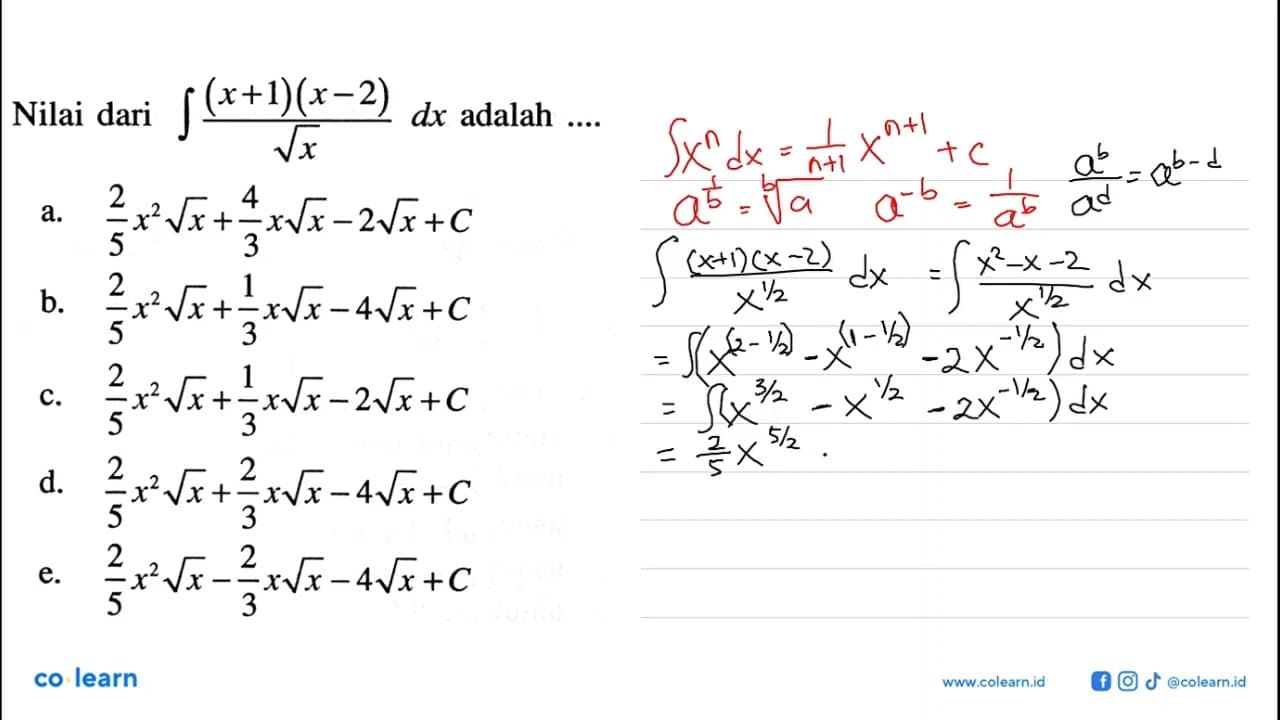 Nilai dari ∫ (x+1)(x−2)/√x dx adalah ....
a. 2/5 x²√x + 4/3 x√x − 2√x + C
b. 2/5 x²√x + 1/3 x√x − 4√x + C
c. 2/5 x²√x + 1/3 x√x − 2√x + C
d. 2/5 x²√x + 2/3 x√x − 4√x + C
e. 2/5 x²√x − 2/3 x√x − 4√x + C
∫xⁿ dx = 1/(n+1) x^(n+1) + c
a^(1/b) = ᵇ√a a^(−b) = 1/a^b a^b/a^d = a^(b−d)
∫ (x+1)(x−2)/x^(1/2) dx = ∫ (x²−x−2)/x^(1/2) dx
= ∫(x^(2−1/2) − x^(1−1/2) − 2x^(−1/2)) dx
= ∫(x^(3/2) − x^(1/2) − 2x^(−1/2)) dx
= 2/5 x^(5/2) .
co learn
www.colearn.id
@colearn.id